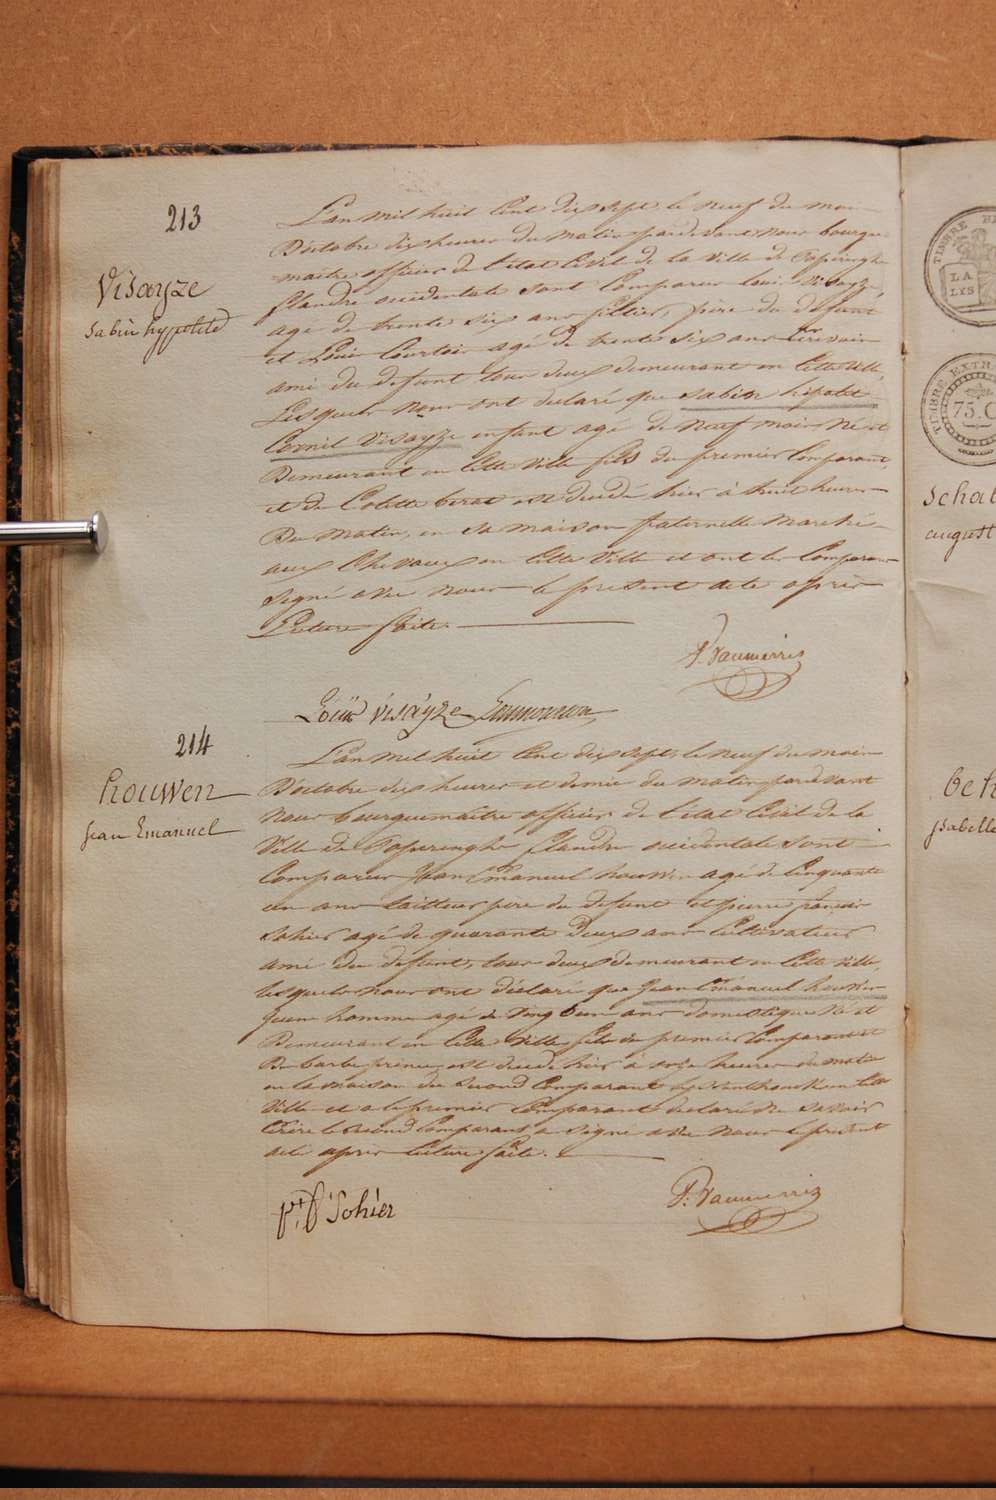 213
Visayze
Sabin hypolite
L'an mil huit Cent dix sept le neuf du mois
D'octobre dix heures du matin pardevant nous bourgue
maitre officier de l'état Civil de la Ville de Poperinghe
flandre occidentale sont Comparus Louis Visayze
agé de trente six ans sillier, père du défunt
et Louis Courtois agé de trente six ans Ecrivain
ami du defunt tous deux demeurant en Cette Ville,
Lesquels nous ont declaré que Sabin hipolit
Cornil Visayze enfant agé de Neuf mois Né et
Demeurant en Cette Ville fils du premier Comparant,
et de Colette est decedé hier à huit heures
Du matin, en sa maison paternelle Marché
aux Chevaux en Cette Ville et ont les Comparans
signé avec nous le present acte après
Lecture faite.
P. Vanmerris
Loüis Visayze
214
houwen
Jean Emanuel
L'an mil huit Cent dix sept le neuf du mois
D'octobre dix heures et demie du matin pardevant
Nous bourguemaitre officier de l'état Civil de la
Ville de Poperinghe flandre occidentale sont
Comparus Jean Emanuel houwen agé de Cinquante
un ans laitteur père du defunt et pierre françois
Sohier agé de quarante deux ans Cultivateur
ami du defunt, tous deux demeurant en Cette Ville,
lesquels nous ont déclaré que Jean Emanuel houwen
Jeune homme agé de Vingt un ans domestique Né et
Demeurant en Cette Ville fils du premier Comparant et
De barbe est decedé hier à onze heures du matin
en la maison du second Comparant Cette
Ville et a le premier Comparant declaré ne savoir
Ecrire le second Comparant a signé avec nous le present
acte après lecture faite.
p.r f Sohier
P: Vanmerris
TIMBRE
LA
LYS
TIMBRE EXTRA
75. C
august